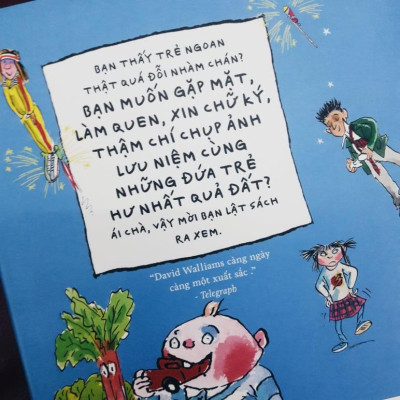 BẠN THẤY TRẺ NGOAN
THẬT QUÁ ĐỖI NHÀM CHÁN?
BẠN MUỐN GẶP MẶT,
LÀM QUEN, XIN CHỮ KÝ,
THẬM CHÍ CHỤP ẢNH
LƯU NIỆM CÙNG
NHỮNG ĐỨA TRẺ
HƯ NHẤT QUẢ ĐẤT?
ÁI CHÀ, VẬY MỜI BẠN LẬT SÁCH
RA XEM.
"David Walliams càng ngày
càng một xuất sắc ."
- Telegraph